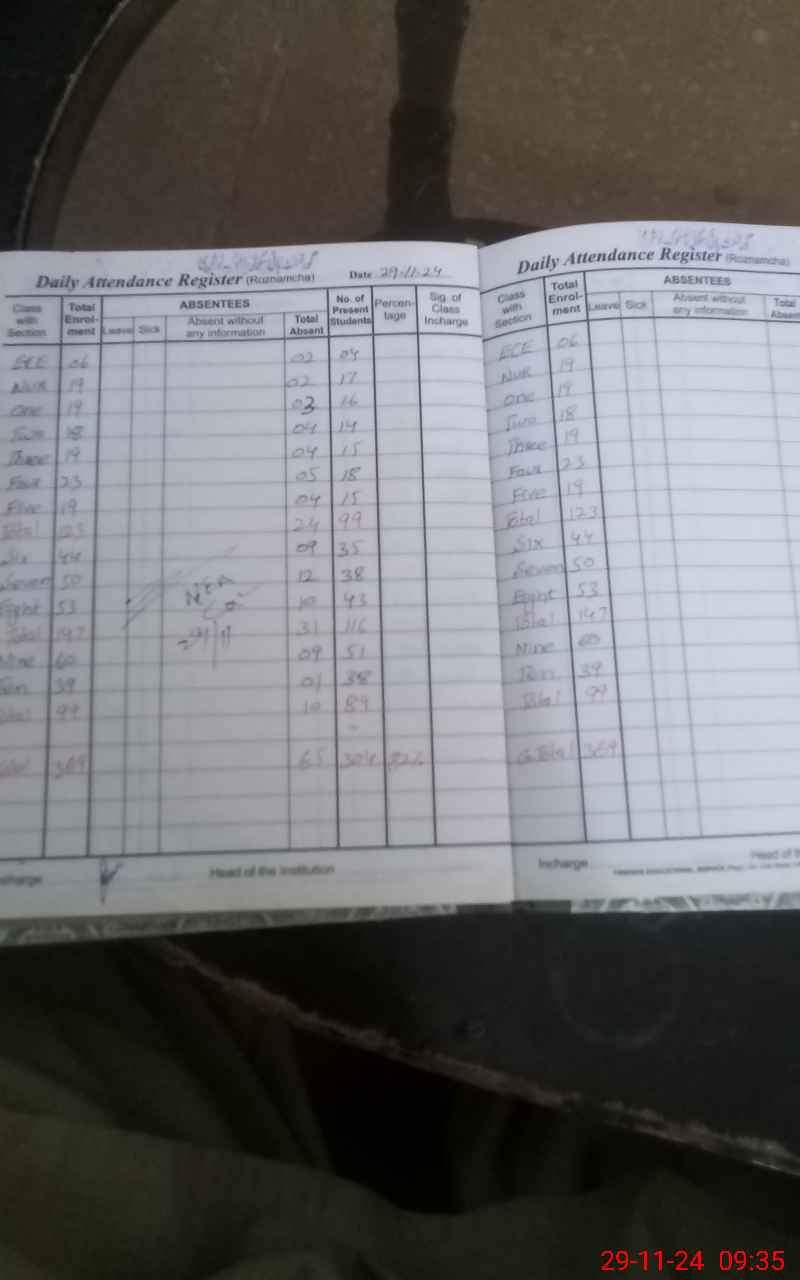 Daily Attendance Register (Roznamcha) Date 29-11-24
Class with Section Total Enrol-ment ABSENTEES Leave Sick Absent without any information Total Absent No. of Present Students Percen-tage Sig. of Class Incharge
ECE 06 02 04
Nur 19 02 17
One 19 03 16
Two 18 04 14
Three 19 04 15
Four 23 05 18
Five 19 04 15
Total 123 24 99
Six 44 09 35
Seven 50 12 38
Eight 53 10 43
Total 147 31 116
Nine 60 09 51
Ten 39 01 38
Total 99 10 89
Total 369 65 304 82%
Incharge Head of the Institution
Daily Attendance Register (Roznamcha)
Class with Section Total Enrol-ment ABSENTEES Leave Sick Absent without any information Total Absent
ECE 06
Nur 19
One 19
Two 18
Three 19
Four 23
Five 19
Total 123
Six 44
Seven 50
Eight 53
Total 147
Nine 60
Ten 39
Total 99
G.Total 369
Incharge Head of
29-11-24 09:35